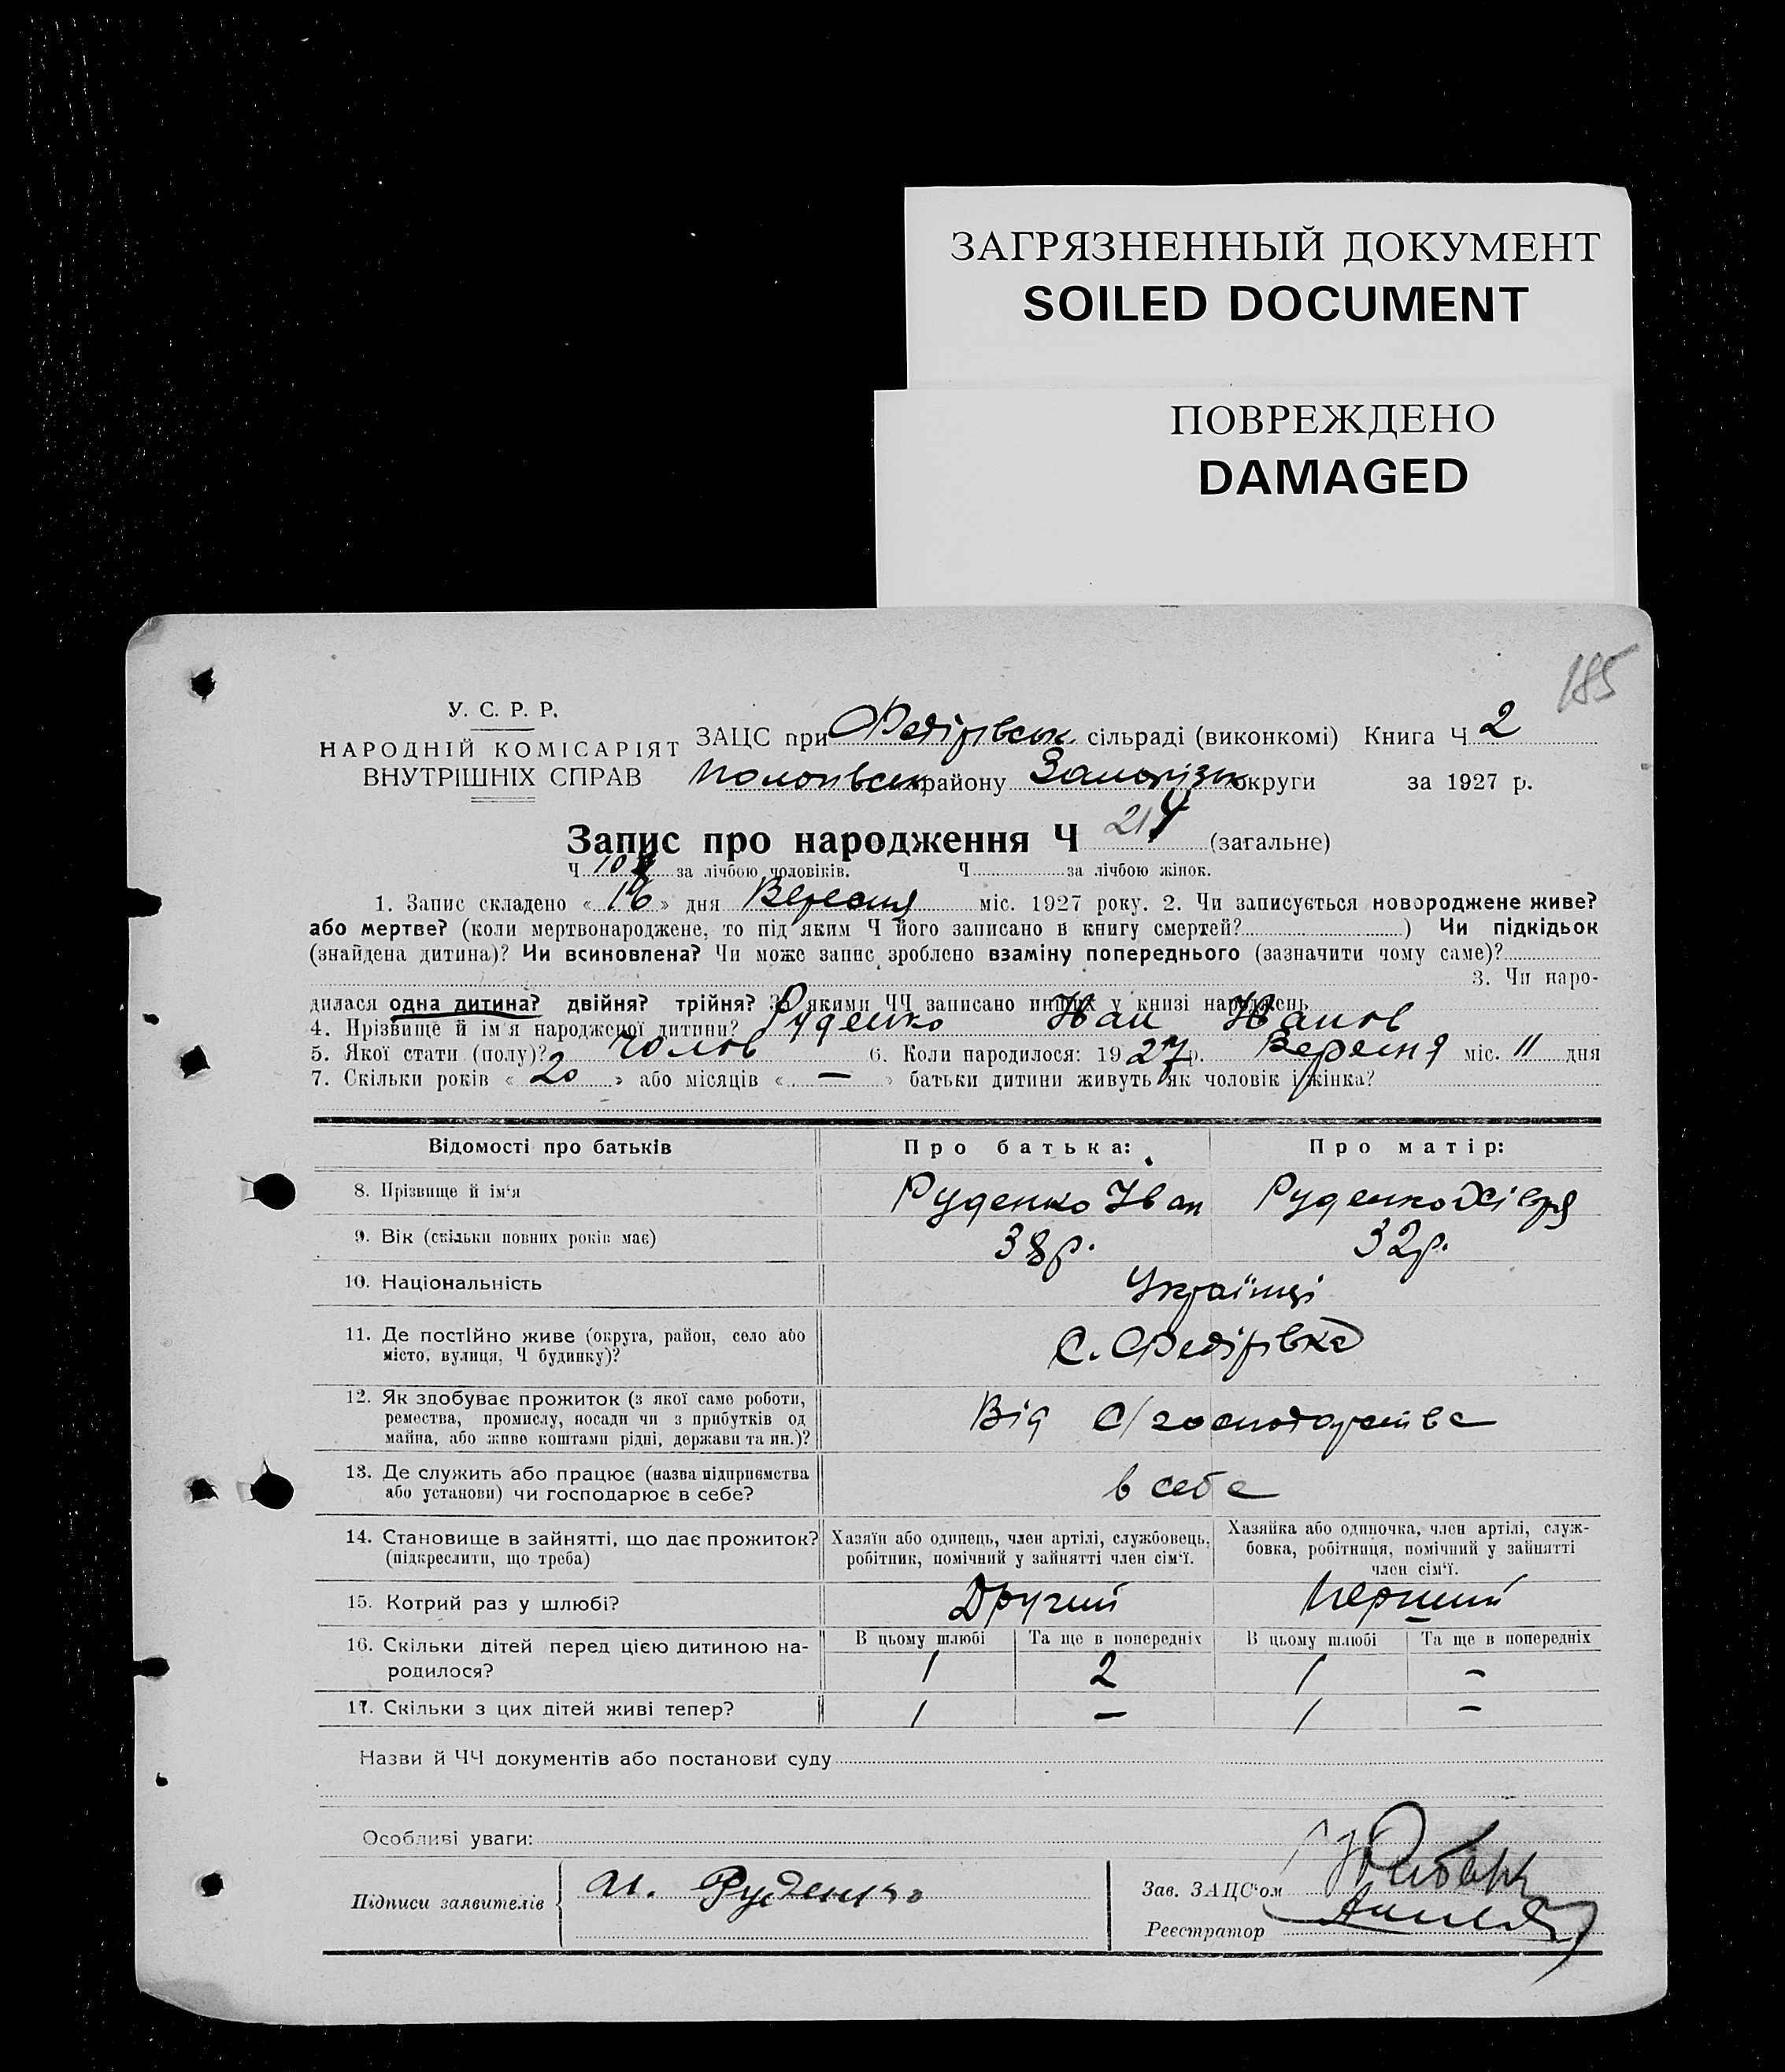 ЗАГРЯЗНЕННЫЙ ДОКУМЕНТ
SOILED DOCUMENT
ПОВРЕЖДЕНО
DAMAGED
185
У. С. Р. Р.
НАРОДНІЙ КОМІСАРІЯТ
ВНУТРІШНІХ СПРАВ
ЗАЦС при Федірівськ. сільраді (виконкомі) Книга Ч 2
Пологівськ району Запорізьк округи за 1927 р.
Запис про народження Ч 214 (загальне)
Ч 108 за лічбою чоловіків. Ч за лічбою жінок.
1. Запис складено « 16 » дня Вересня міс. 1927 року. 2. Чи записується новороджене живе?
або мертве? (коли мертвонароджене, то під яким Ч його записано в книгу смертей? ) Чи підкідьок
(знайдена дитина)? Чи всиновлена? Чи може запис зроблено взаміну попереднього (зазначити чому саме)?
3. Чи наро-
дилася одна дитина? двійня? трійня? За якими ЧЧ записано инших у книзі народжень
4. Прізвище й ім'я народженої дитини? Руденко Іван Іванов
5. Якої стати (полу)? чолов 6. Коли народилося: 1927 р. Вересня міс. 11 дня
7. Скільки років « 20 » або місяців « — » батьки дитини живуть як чоловік і жінка?
Відомості про батьків Про батька: Про матір:
8. Прізвище й ім'я Руденко Іван Руденко Хівря
9. Вік (скільки повних років має) 38р. 32р.
10. Національність Українці
11. Де постійно живе (округа, район, село або
місто, вулиця, Ч будинку)? С. Федірівка
12. Як здобуває прожиток (з якої саме роботи,
ремества, промислу, посади чи з прибутків од
майна, або живе коштами рідні, держави та ин.)? Від с/господарства
13. Де служить або працює (назва підприємства
або установи) чи господарює в себе? в себе
14. Становище в зайнятті, що дає прожиток?
(підкреслити, що треба)
Хазяїн або одинець, член артілі, службовець,
робітник, помічний у зайнятті член сім'ї.
Хазяйка або одиночка, член артілі, служ-
бовка, робітниця, помічний у зайнятті
член сім'ї.
15. Котрий раз у шлюбі? Другий Перший
16. Скільки дітей перед цією дитиною на-
родилося?
В цьому шлюбі Та ще в попередніх В цьому шлюбі Та ще в попередніх
1 2 1 –
17. Скільки з цих дітей живі тепер? 1 – 1 –
Назви й ЧЧ документів або постанови суду
Особливі уваги:
Підписи заявителів Руденко
Зав. ЗАЦС'ом
Реєстратор